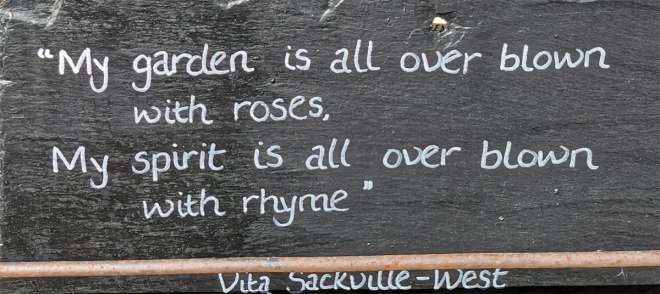 “My garden is all over blown
with roses,
My spirit is all over blown
with rhyme”
Vita Sackville-West